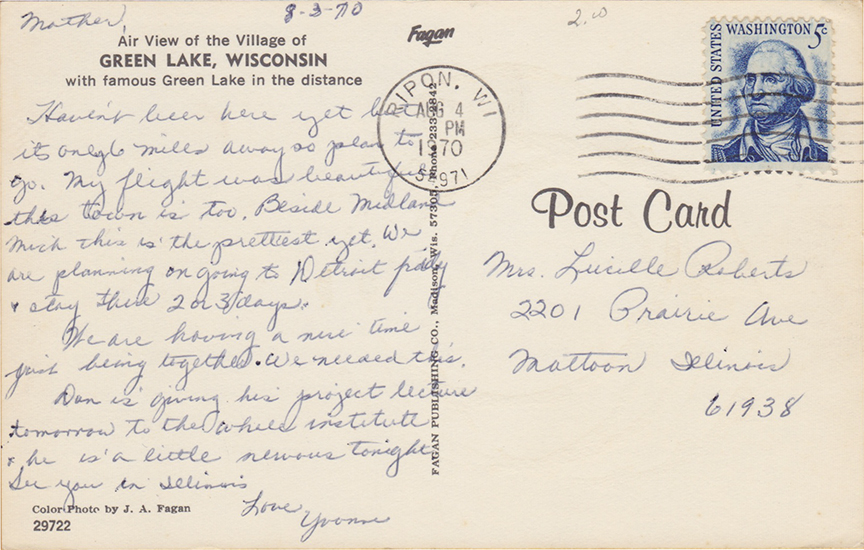 Mother, 8-3-70
2.00
Air View of the Village of
GREEN LAKE, WISCONSIN
with famous Green Lake in the distance
Fagan
Haven't been here yet but
it's only 6 miles away so plan to
go. My flight was beautiful
this town is too. Beside Midland
Mich this is the prettiest yet. We
are planning on going to Detroit friday
+ stay there 2 or 3 days.
We are having a nice time
just being together. We needed this.
Dan is giving his project lecture
tomorrow to the whole institute
+ he is a little nervous tonight.
See you in Illinois
Love
Yvonne
Color Photo by J. A. Fagan
29722
FAGAN PUBLISHING CO., Madison, Wis. 57305, Phone 233-2842
RIPON, WI
AUG 4
PM
1970
54971
UNITED STATES
WASHINGTON 5c
Post Card
Mrs. Lucille Roberts
2201 Prairie Ave
Mattoon Illinois
61938